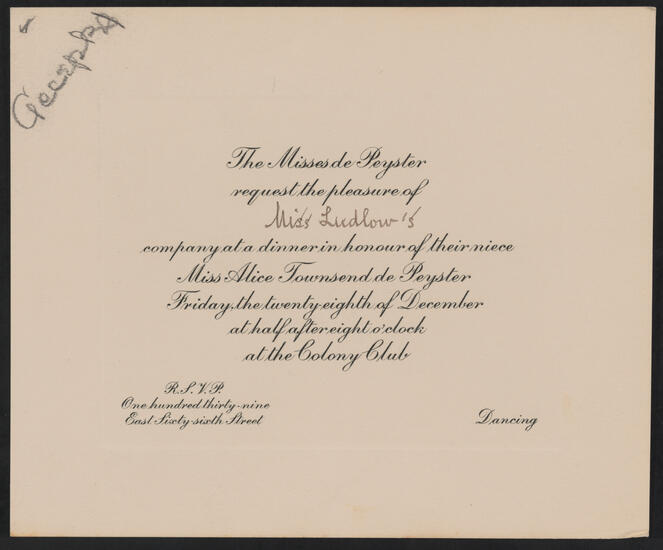 Accepted
The Misses de Peyster
request the pleasure of
Miss Ludlow's
company at a dinner in honour of their niece
Miss Alice Townsend de Peyster
Friday, the twenty-eighth of December
at half after eight o'clock
at the Colony Club
R.S.V.P.
One hundred thirty-nine
East Sixty-sixth Street
Dancing